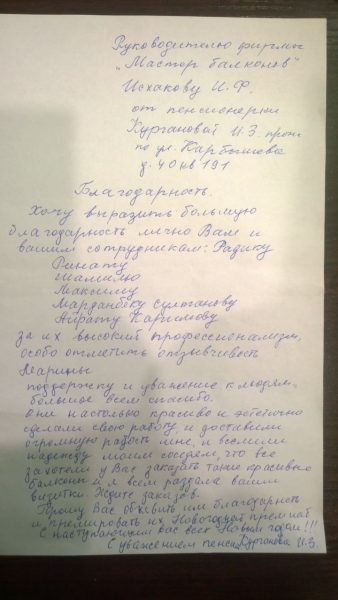 Руководителю фирмы
"Мастер балконов"
Исхакову И.Ф.
от пенсионерки
Кургановой И.З. прож
по ул. Карбышева
д. 40 кв 191
Благодарность.
Хочу выразить большую
благодарность лично Вам и
вашим сотрудникам: Радику
Ринату
Шамилю
Максиму
Марданбеку Султанову
Айрату Каримову
за их высокий профессионализм,
особо отметить отзывчивость
Марины
поддержку и уважение к людям,
большое всем спасибо.
Они настолько красиво и эстетично
сделали свою работу и доставили
огромную радость мне, и вселили
надежду моим соседям, что все
захотели у Вас заказать такие красивые
балконы и я всем раздала ваши
визитки. Ждите заказов.
Прошу Вас объявить им благодарность
и премировать их Новогодней премией
С наступающим вас всех Новым годом!!!
С уважением пенсион Курганова И.З.